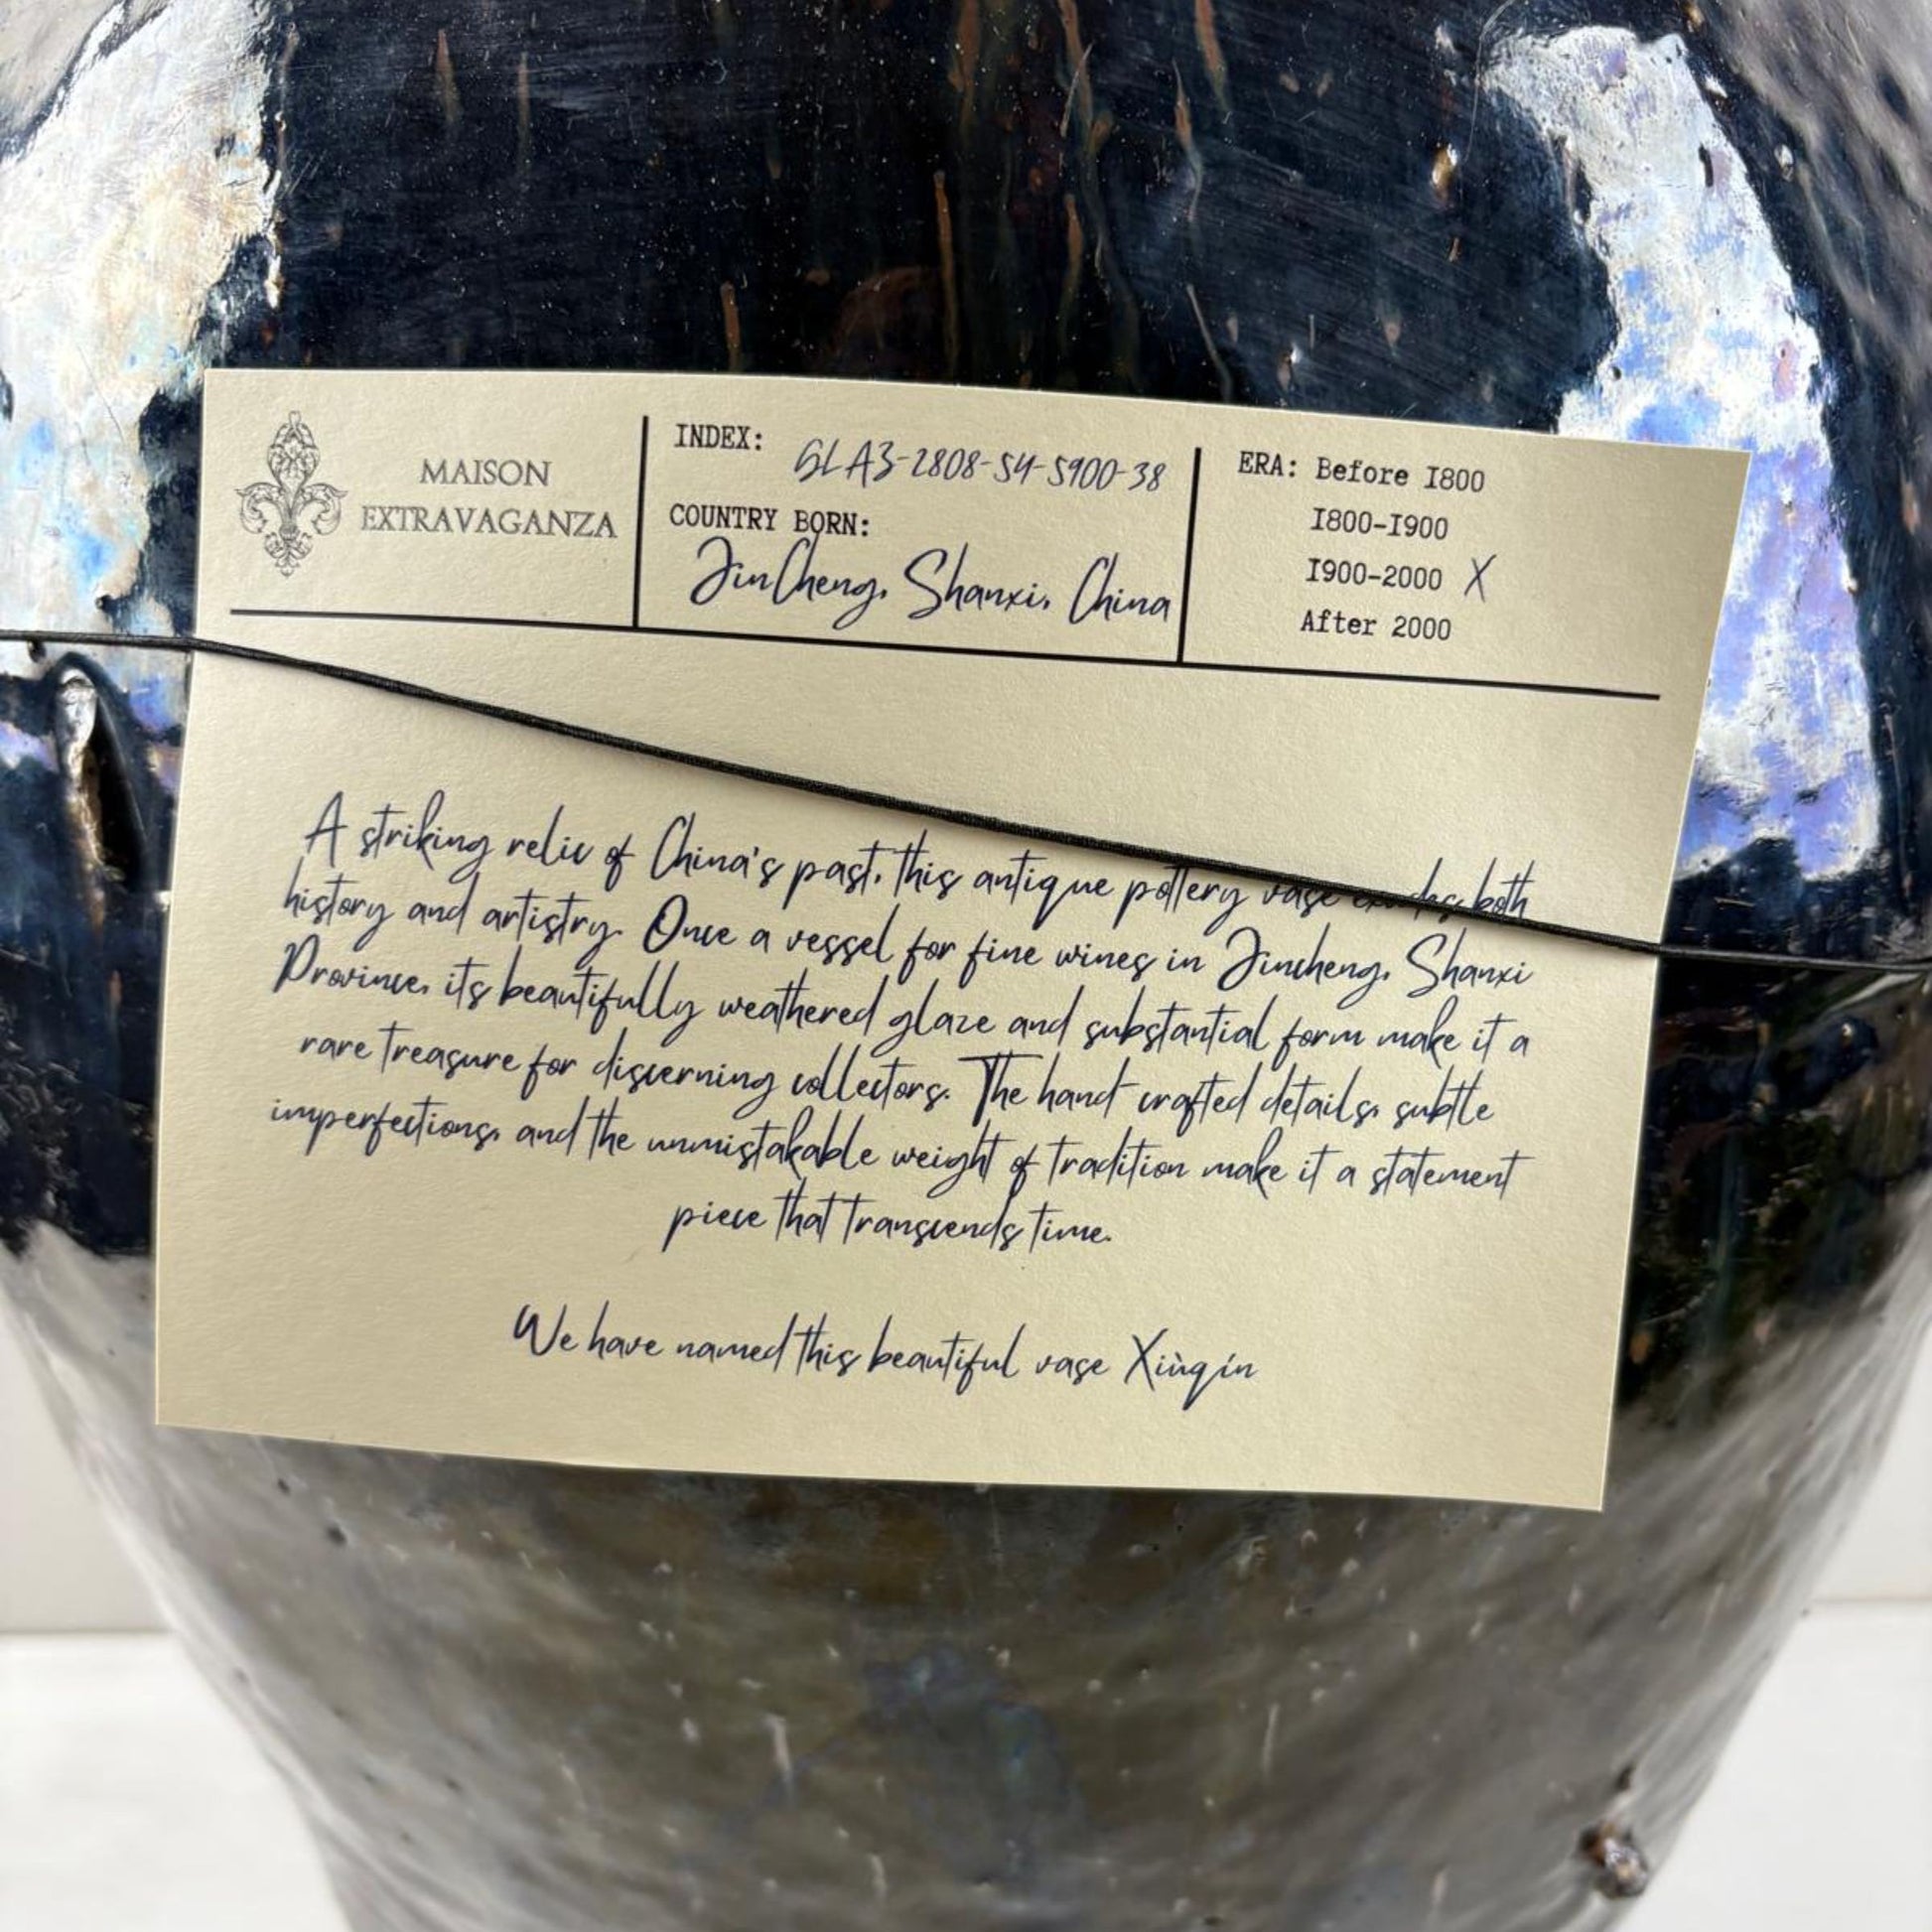 MAISON
EXTRAVAGANZA
INDEX: GLA3-2808-S4-S900-38
COUNTRY BORN:
JinCheng, Shanxi, China
ERA: Before 1800
1800-1900
1900-2000 X
After 2000
A striking relic of China's past, this antique pottery vase exudes both
history and artistry. Once a vessel for fine wines in Jincheng, Shanxi
Province, its beautifully weathered glaze and substantial form make it a
rare treasure for discerning collectors. The hand-crafted details, subtle
imperfections, and the unmistakable weight of tradition make it a statement
piece that transcends time.
We have named this beautiful vase Xiùqín